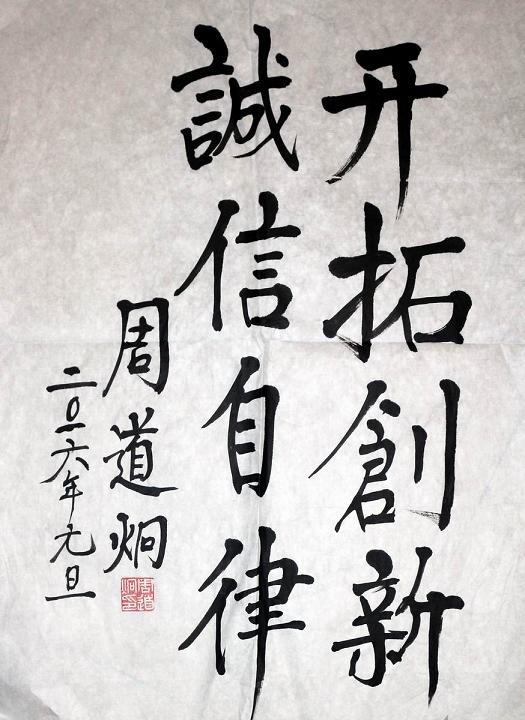 开拓創新
誠信自律
周道炯
二〇一六年元旦
周道炯印